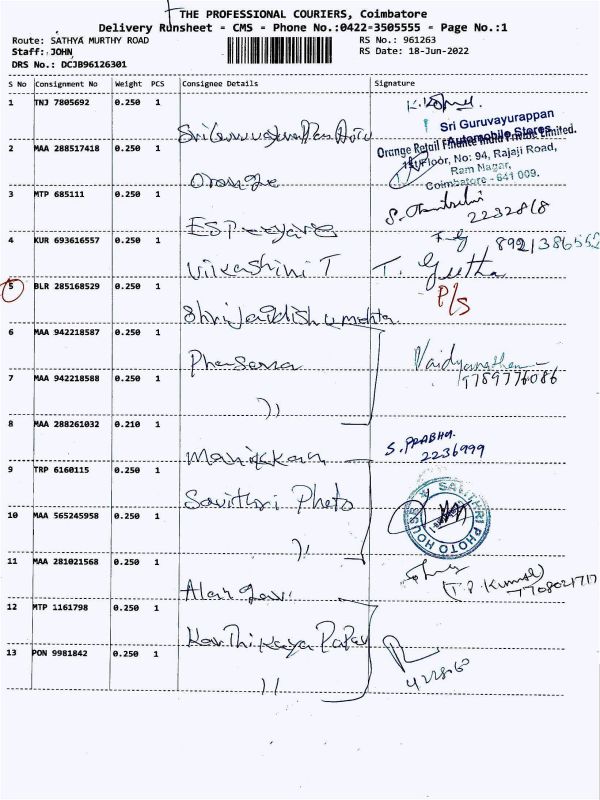 THE PROFESSIONAL COURIERS, Coimbatore
Delivery Runsheet - CMS - Phone No.:0422-3505555 - Page No.:1
Route: SATHYA MURTHY ROAD RS No.: 961263
Staff: JOHN RS Date: 18-Jun-2022
DRS No.: DCJB96126301
S No Consignment No Weight PCS Consignee Details Signature
1 TNJ 7805692 0.250 1
Sri Guruvayurappan Auto
Sri Guruvayurappan
Automobile Stores
2 MAA 288517418 0.250 1
Orange
Orange Retail Finance India Private Limited.
1st Floor, No: 94, Rajaji Road,
Ram Nagar,
Coimbatore - 641 009.
3 MTP 685111 0.250 1
2232818
4 KUR 693616557 0.250 1
T
5 BLR 285168529 0.250 1
T. Geetha
P/S
6 MAA 942218587 0.250 1
7 MAA 942218588 0.250 1
9789776086
8 MAA 288261032 0.210 1
Manickkam
S. PRABHA.
2236999
9 TRP 6160115 0.250 1
Savithri Photo
SAVITHRI PHOTO HOUSE
10 MAA 565245958 0.250 1
11 MAA 281021568 0.250 1
(T.P. Kumar)
7708021717
12 MTP 1161798 0.250 1
13 PON 9981842 0.250 1